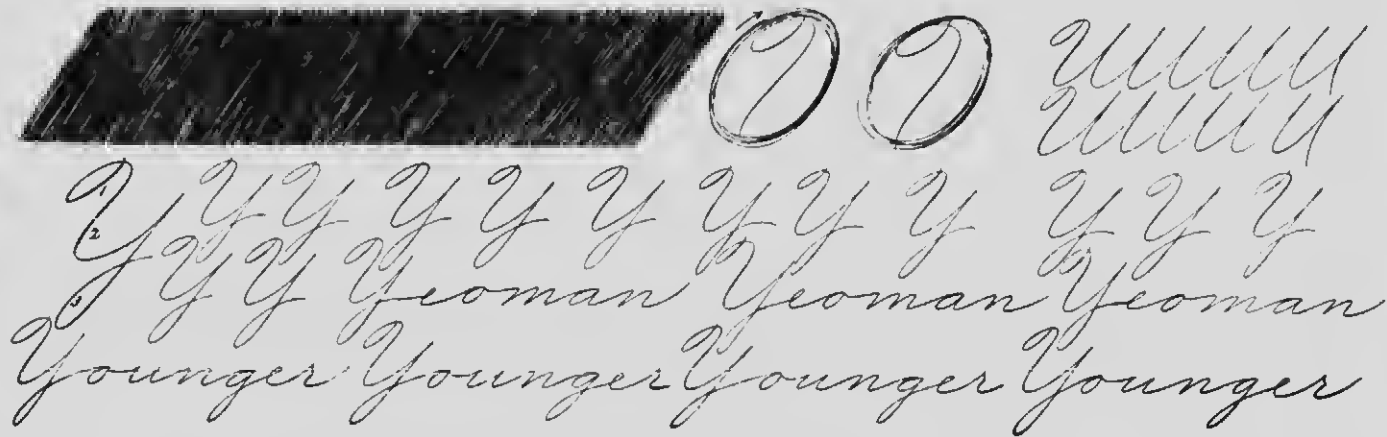 Y Y Y Y Y Y Y Y Y Y Y Y
Y Y Yeoman Yeoman Yeoman
Younger Younger Younger Younger